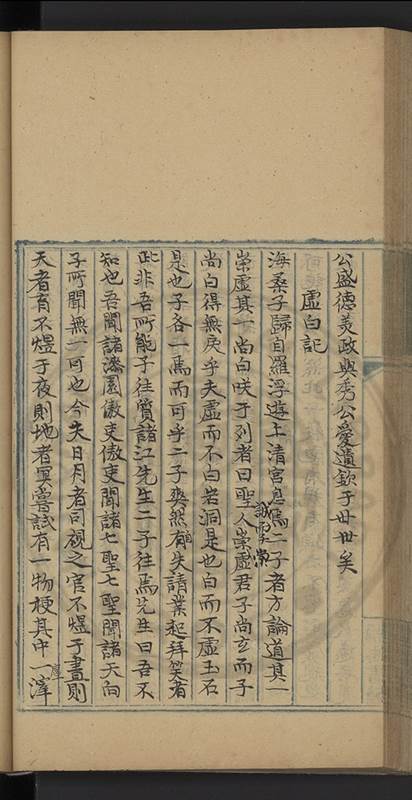 公盛德美政與秀公愛遺欽于世世矣
虛白記
海桑子歸自羅浮遊上清宮息焉二子者方論道其一
崇虛其一尚白咲于列者曰聖人崇虛君子尚玄而子
尚白得無戾乎夫虛而不白岩洞是也白而不虛玉石
是也子各一焉而可乎二子爽然有失請業起拜笑者
此非吾所能子往質諸江先生二子往焉先生曰吾不
知也吾聞諸漆園傲吏傲吏聞諸七聖七聖聞諸天向
子所聞無一可也今夫日月者司視之官不煜于晝則
天者盲不煜于夜則地者冥嘗試有一物梗其中一滓